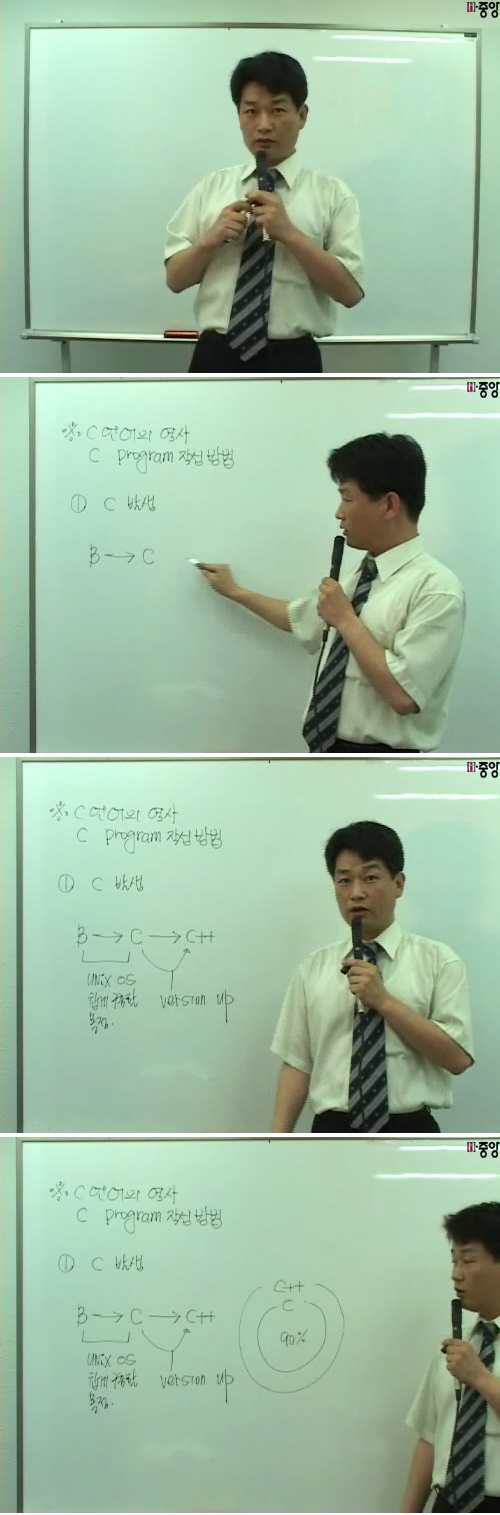 i·중앙
i·중앙
※ C 언어의 역사
C program 작성 방법
① C 발생
B → C
i·중앙
※ C 언어의 역사
C program 작성 방법
① C 발생
B → C → C++
UNIX OS
version up
i·중앙
※ C 언어의 역사
C program 작성 방법
① C 발생
B → C → C++
C++
C
90%
UNIX OS
version up